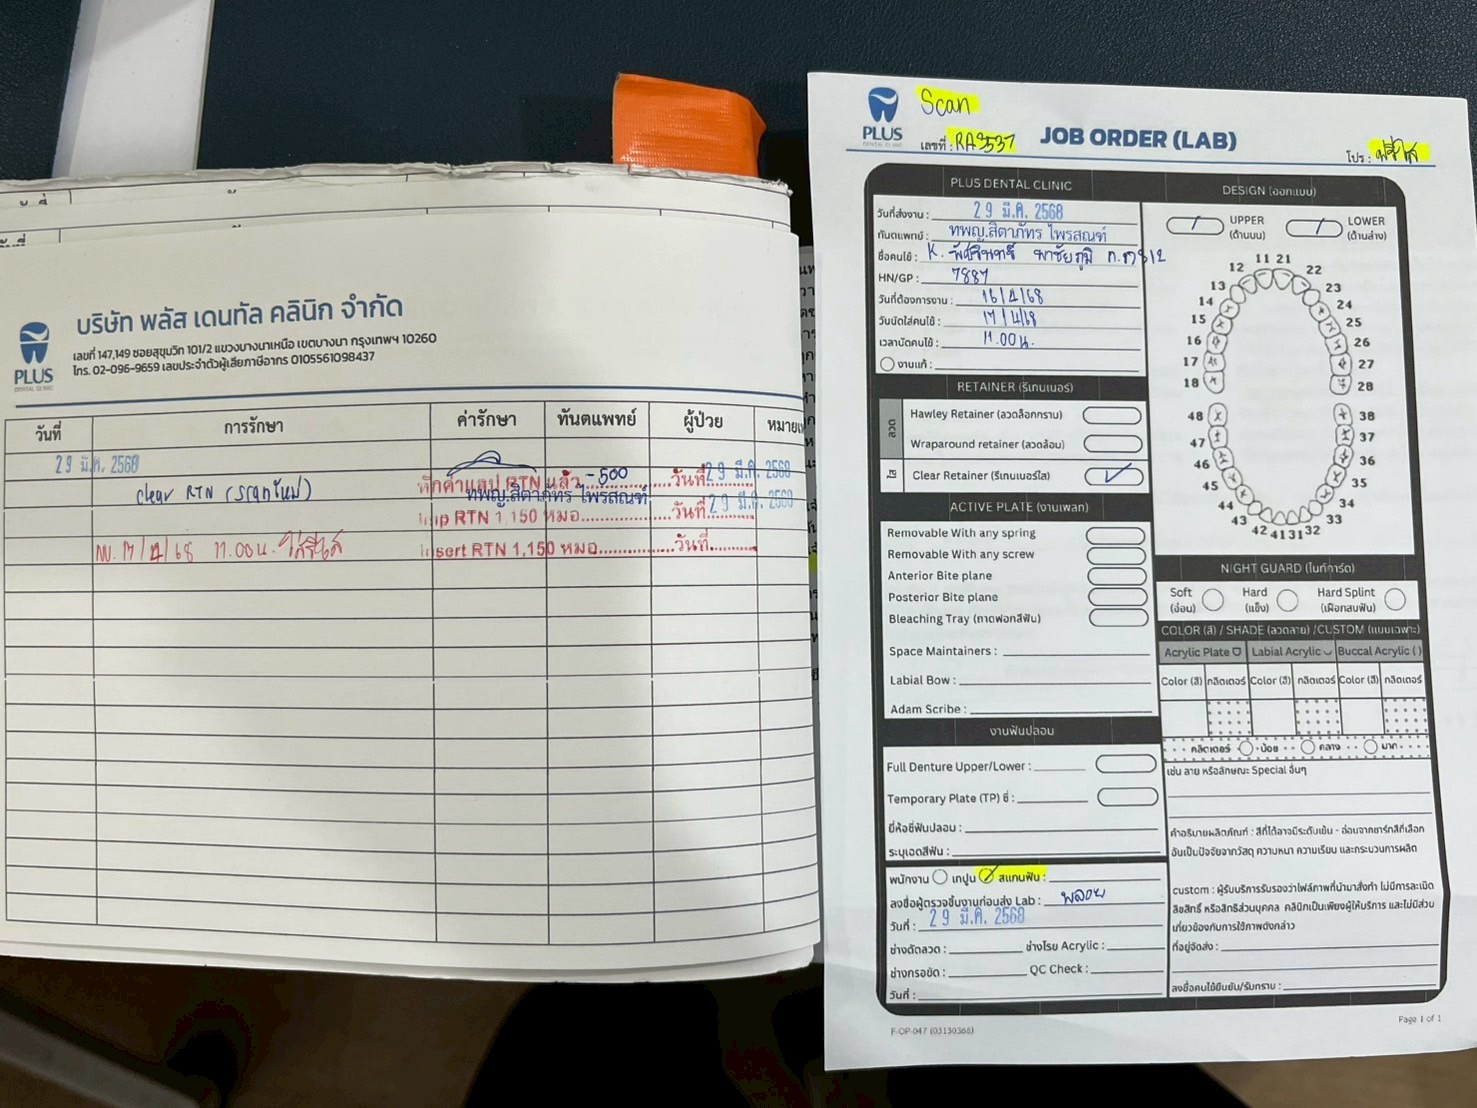 บริษัท พลัส เดนทัล คลินิก จำกัด
เลขที่ 147,149 ซอยสุขุมวิท 101/2 แขวงบางนาเหนือ เขตบางนา กรุงเทพฯ 10260
โทร. 02-096-9659 เลขประจำตัวผู้เสียภาษีอากร 0105561098437
PLUS
DENTAL CLINIC
วันที่ การรักษา ค่ารักษา ทันตแพทย์ ผู้ป่วย
29 มี.ค. 2568
clear RTN (scanใหม่)
RTN แล้ว -500 วันที่ 29 มี.ค. 2568
ทพญ.สิตาภัทร ไพรสณฑ์
RTN 1,150 หมอ วันที่ 29 มี.ค. 2568
17/4/68 11.00น.
Insert RTN 1,150 หมอ วันที่
PLUS
DENTAL CLINIC
Scan
เลขที่ : RA3537
JOB ORDER (LAB)
โปร :
PLUS DENTAL CLINIC
วันที่ส่งงาน : 29 มี.ค. 2568
ทันตแพทย์ : ทพญ.สิตาภัทร ไพรสณฑ์
ชื่อคนไข้ : K.
HN/GP : 7887
วันที่ต้องการงาน : 16/4/68
วันนัดใส่คนไข้ : 17/4/68
เวลานัดคนไข้ : 11.00น.
งานแก้ :
RETAINER (รีเทนเนอร์)
ลวด
Hawley Retainer (ลวดล็อกกราบ)
Wraparound retainer (ลวดล้อม)
ใส
Clear Retainer (รีเทนเนอร์ใส)
ACTIVE PLATE (งานเพลท)
Removable With any spring
Removable With any screw
Anterior Bite plane
Posterior Bite plane
Bleaching Tray (ถาดฟอกสีฟัน)
Space Maintainers :
Labial Bow :
Adam Scribe :
งานฟันปลอม
Full Denture Upper/Lower :
Temporary Plate (TP) ซี่ :
ยี่ห้อซี่ฟันปลอม :
ระบุเฉดสีฟัน :
พนักงาน เทปูน สแกนฟัน :
ลงชื่อผู้ตรวจชิ้นงานก่อนส่ง Lab : พลอย
วันที่ : 29 มี.ค. 2568
ช่างดัดลวด : ช่างโรย Acrylic :
ช่างกรอขัด : QC Check :
วันที่ :
F-OP-047 (03130366)
DESIGN (ออกแบบ)
UPPER (ด้านบน) LOWER (ด้านล่าง)
11 21
12 22
13 23
14 24
15 25
16 26
17 27
18 28
48 38
47 37
46 36
45 35
44 34
43 33
42 41 31 32
NIGHT GUARD (ไนท์การ์ด)
Soft (อ่อน) Hard (แข็ง) Hard Splint (เฝือกสบฟัน)
COLOR (สี) / SHADE (ลวดลาย) /CUSTOM (แบบเฉพาะ)
Acrylic Plate Labial Acrylic Buccal Acrylic ( )
Color (สี) กลิตเตอร์ Color (สี) กลิตเตอร์ Color (สี) กลิตเตอร์
กลิตเตอร์ น้อย กลาง มาก
เช่น ลาย หรือลักษณะ Special อื่นๆ
คำอธิบายผลิตภัณฑ์ : สีที่ได้อาจมีระดับเข้ม - อ่อนจากชาร์ทสีที่เลือก
อันเป็นปัจจัยจากวัสดุ ความหนา ความเรียบ และกระบวนการผลิต
custom : ผู้รับบริการรับรองว่าไฟล์ภาพที่นำมาสั่งทำ ไม่มีการละเมิด
ลิขสิทธิ์ หรือสิทธิส่วนบุคคล คลินิกเป็นเพียงผู้ให้บริการ และไม่มีส่วน
เกี่ยวข้องกับการใช้ภาพดังกล่าว
ที่อยู่จัดส่ง :
ลงชื่อคนไข้ยืนยัน/รับทราบ :
Page 1 of 1